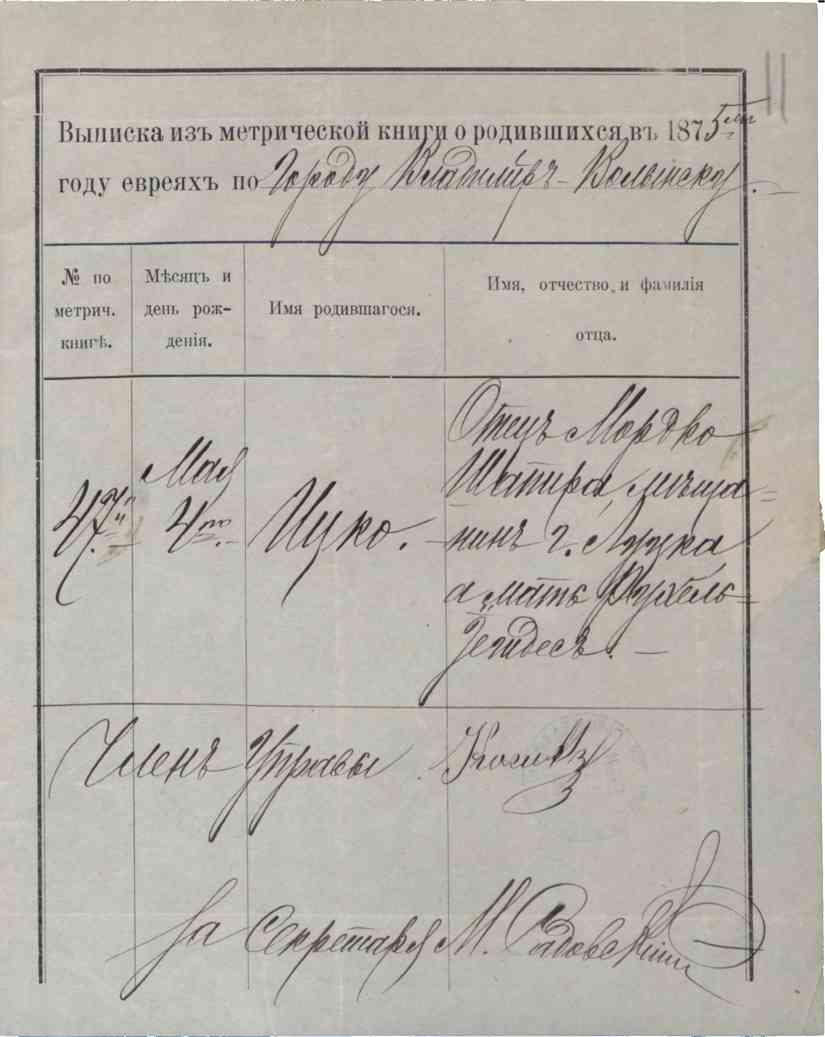 11
Выписка изъ метрической книги о родившихся въ 1875мъ
году евреяхъ по Городу Владиміръ-Волынску.
№ по метрич. книгѣ.
Мѣсяцъ и день рож-денія.
Имя родившагося.
Имя, отчество и фамилія отца.
47й
Мая
4го
Ицко.
Отецъ Мордко
Шапира, мѣща=
нинъ г. Луцка
а мать Рухель=
Членъ Управы
За Секретаря М. Садовскій